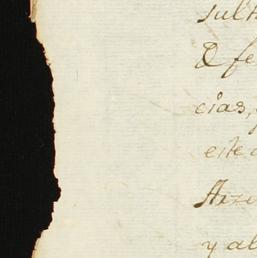 sult
D fe
cias,
este
Arzo
y al